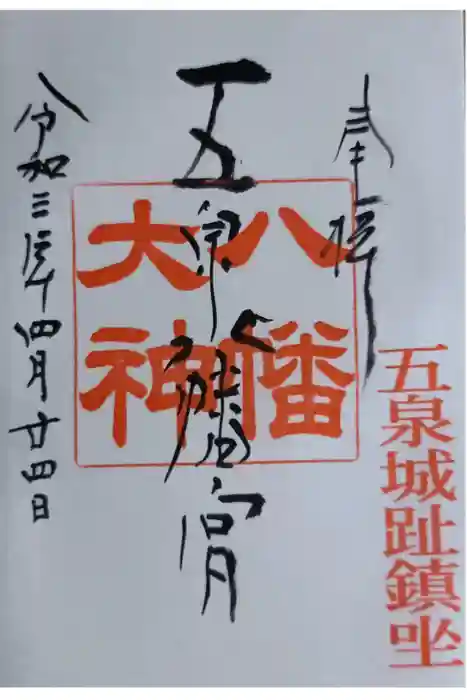 奉拝
五泉城趾鎮坐
八幡
大神
五泉八幡宮
令和三年四月廿四日